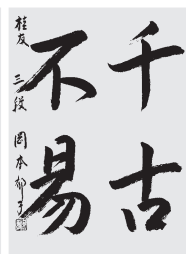 千古
不易
桂友 三段 岡本郁子